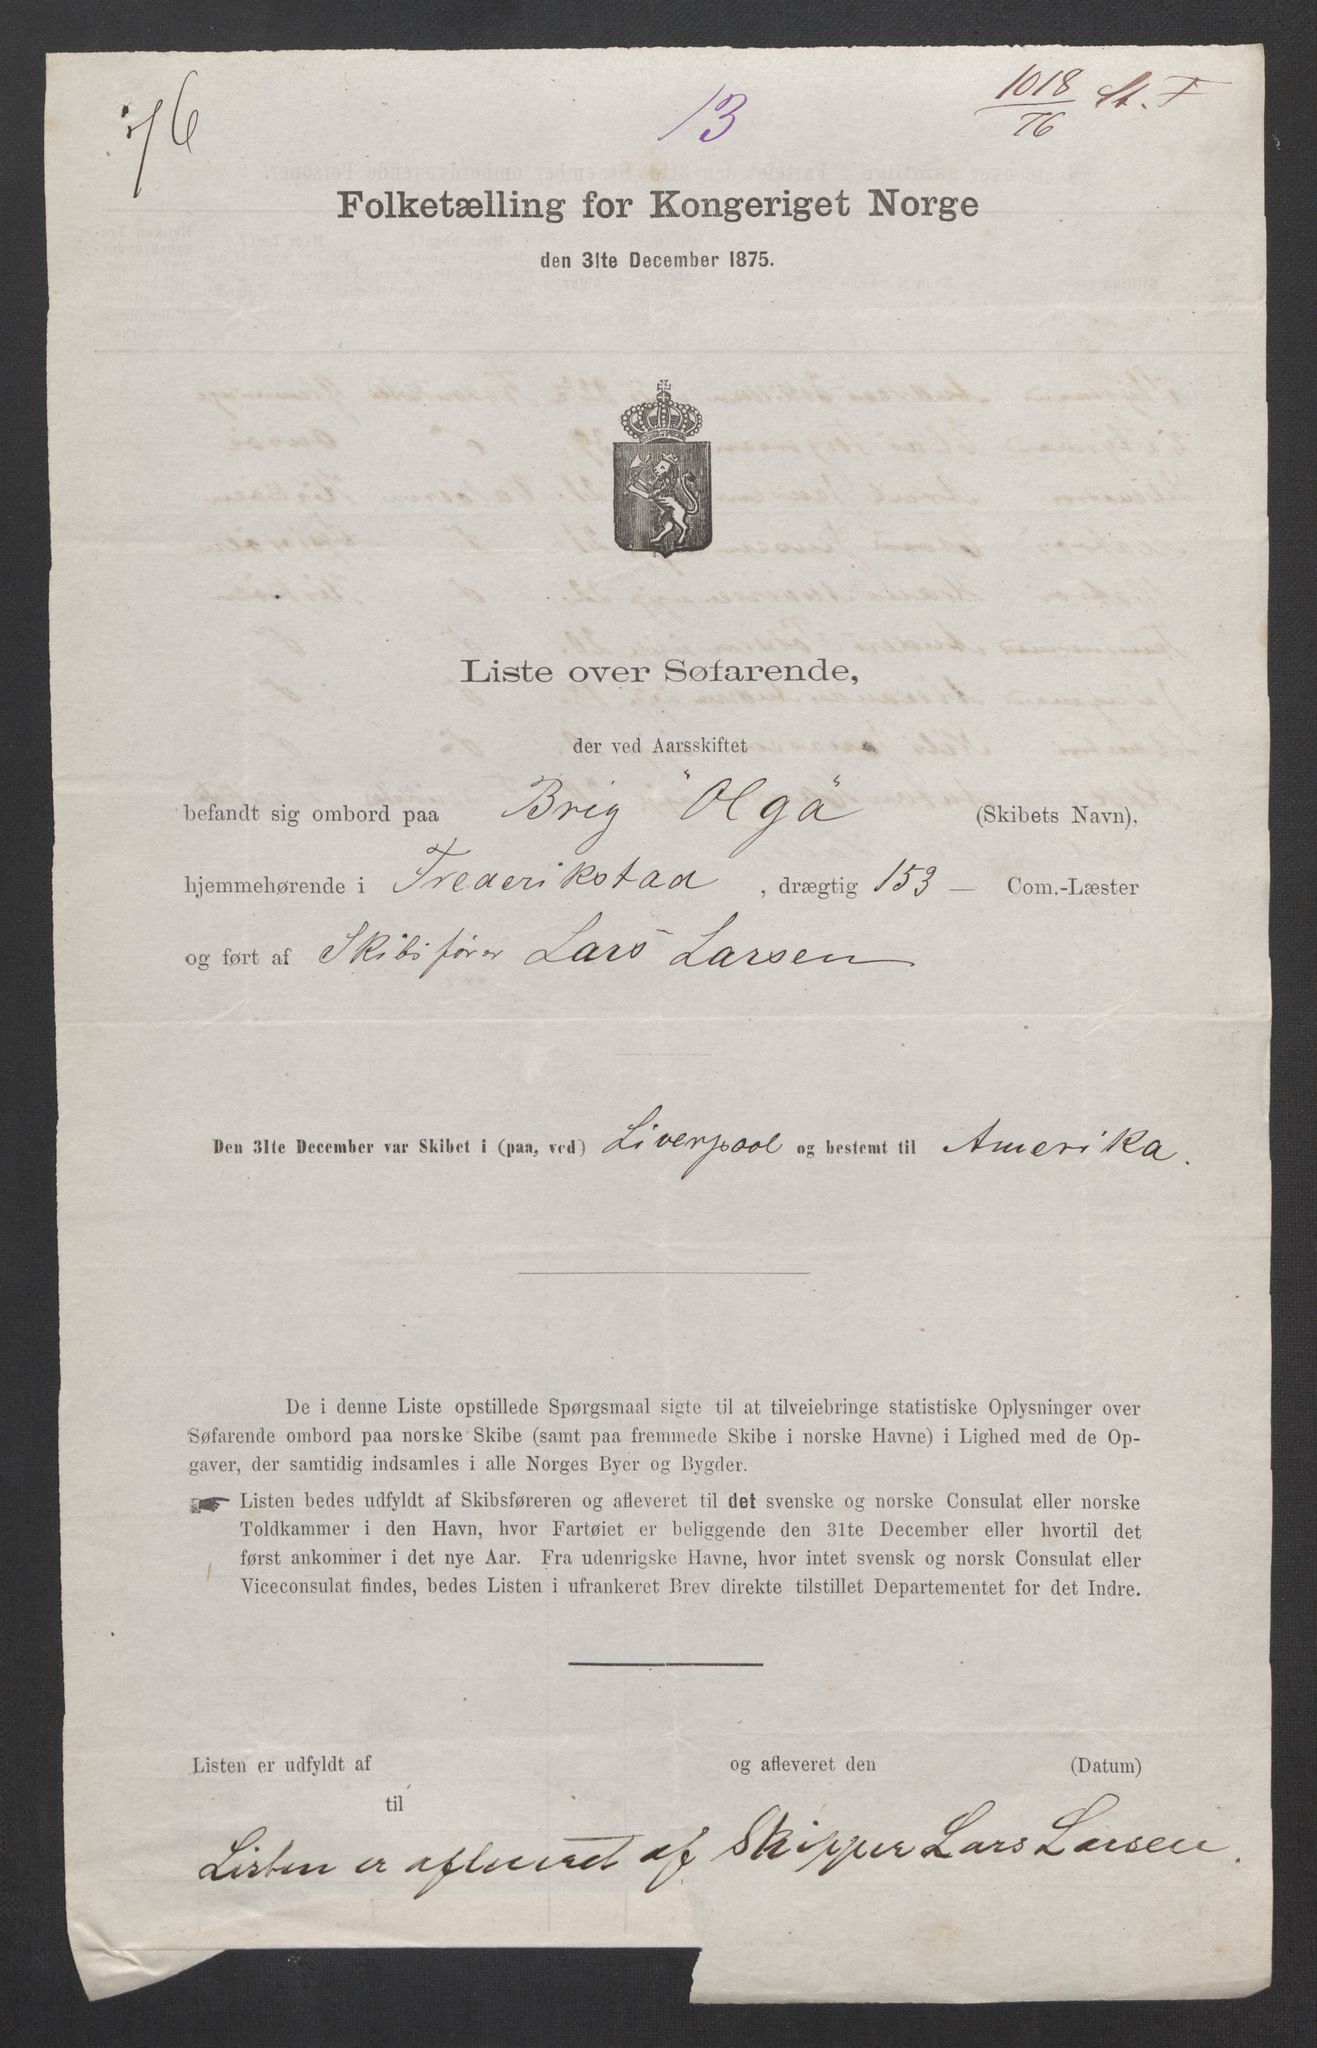 76
13
1018/76 St. F
Folketælling for Kongeriget Norge
den 31te December 1875.
Liste over Søfarende,
der ved Aarsskiftet
befandt sig ombord paa Brig "Olga" (Skibets Navn),
hjemmehørende i Frederikstad, drægtig 153 — Com.-Læster
og ført af Skibsfører Lars Larsen
Den 31te December var Skibet i (paa, ved) Liverpool og bestemt til Amerika.
De i denne Liste opstillede Spørgsmaal sigte til at tilveiebringe statistiske Oplysninger over
Søfarende ombord paa norske Skibe (samt paa fremmede Skibe i norske Havne) i Lighed med de Op-
gaver, der samtidig indsamles i alle Norges Byer og Bygder.
☛ Listen bedes udfyldt af Skibsføreren og afleveret til det svenske og norske Consulat eller norske
Toldkammer i den Havn, hvor Fartøiet er beliggende den 31te December eller hvortil det
først ankommer i det nye Aar. Fra udenrigske Havne, hvor intet svensk og norsk Consulat eller
Viceconsulat findes, bedes Listen i ufrankeret Brev direkte tilstillet Departementet for det Indre.
Listen er udfyldt af og afleveret den (Datum)
til
Listen er afleveret af Skipper Lars Larsen.